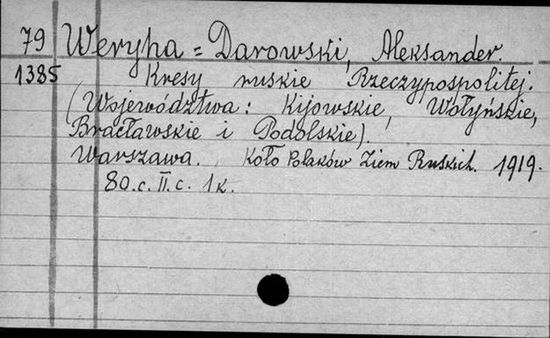 79 Weryha = Darowski, Aleksander.
1385 Kresy ruskie Rzeczypospolitej.
(Województwa: Kijowskie, Wołyńskie,
Bracławskie i Podolskie).
Warszawa. Koło Polaków Ziem Ruskich. 1919.
80.c. II.c. 1k.